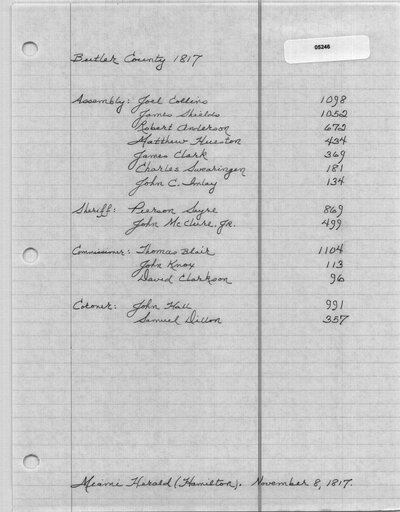 05246
Butler County 1817
Assembly: Joel Collins 1098
James Shields 1052
Robert Anderson 672
Matthew Hueston 434
James Clark 369
Charles Swearingen 181
John C. Imlay 134
Sheriff: Pierson Sayre 869
John McClure, Jr. 499
Commissioner: Thomas Blair 1104
John Knox 113
David Clarkson 96
Coroner: John Hall 991
Samuel Dillon 357
Miami Herald (Hamilton). November 8, 1817.